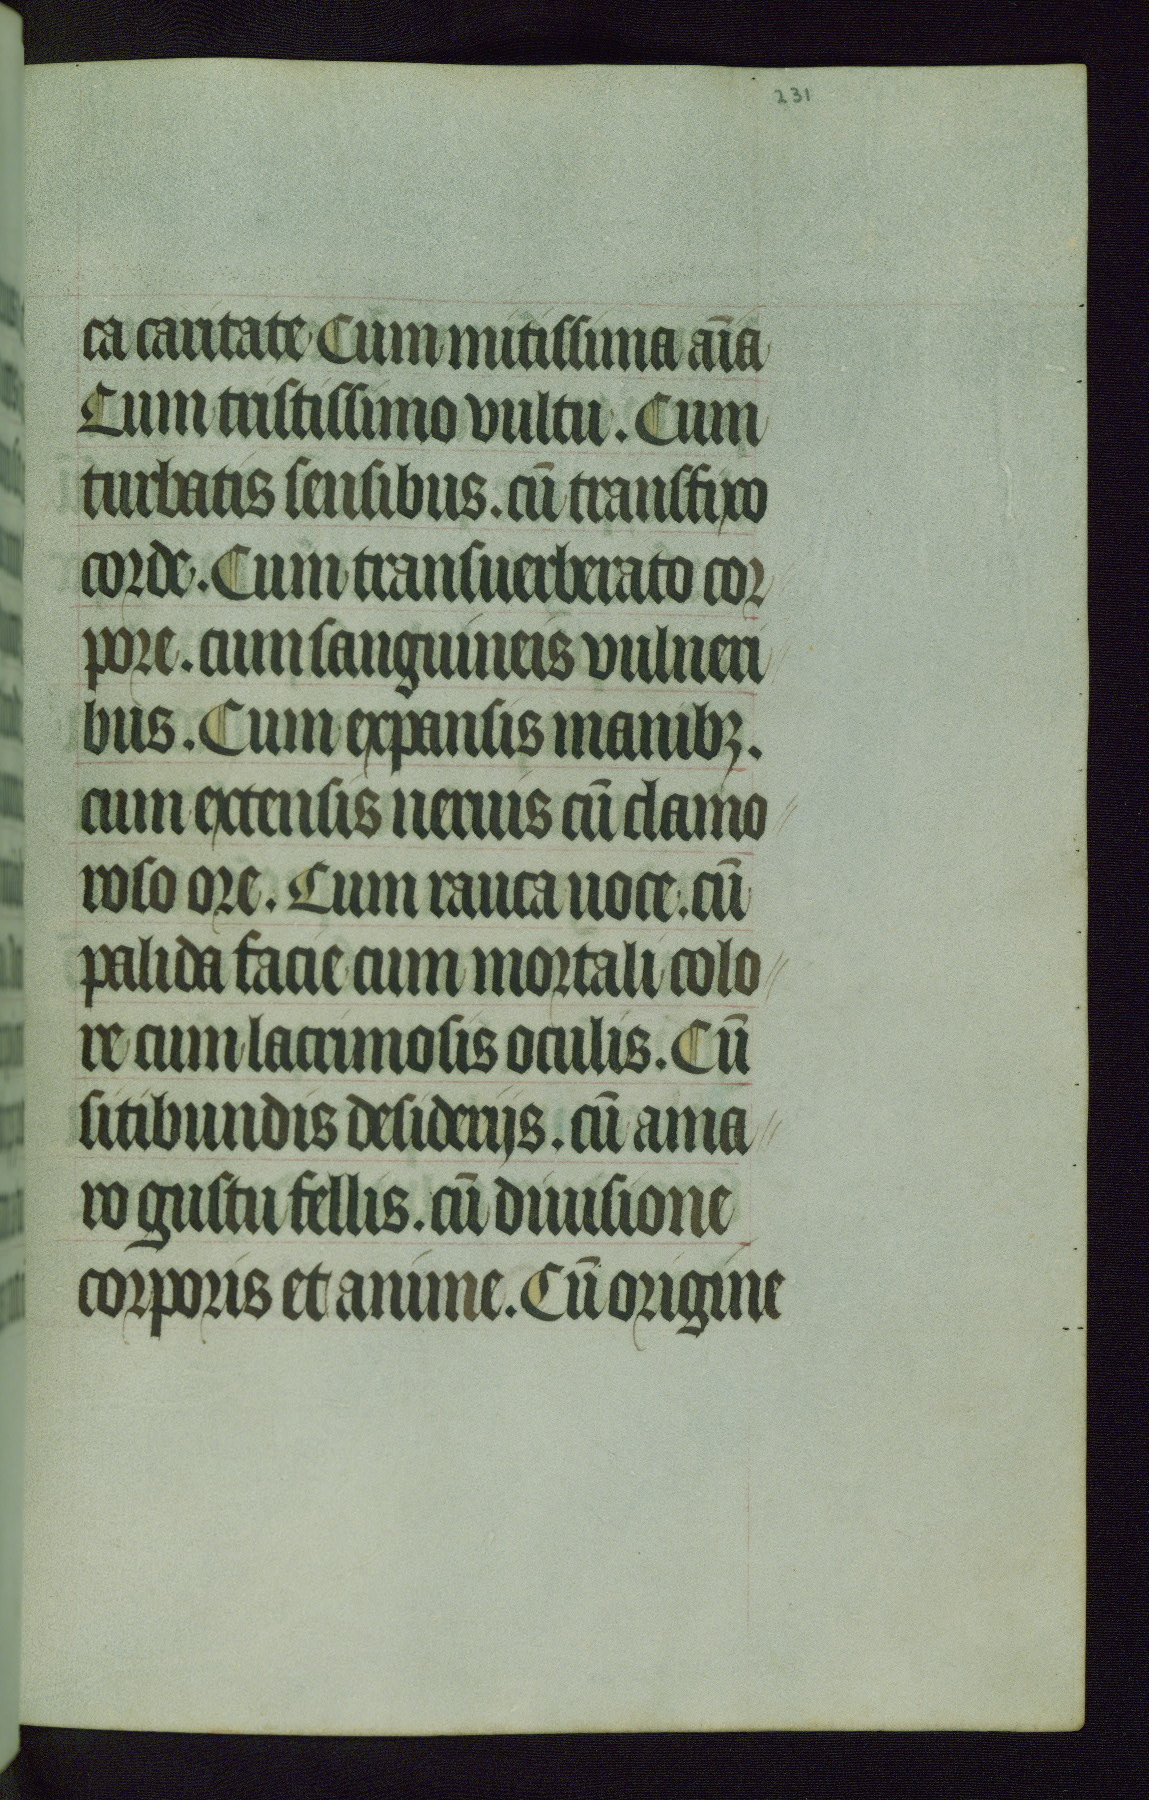 231
ca caritate Cum mitissima aīa
Cum tristissimo vultu. Cum
turbatis sensibus. cū transfixo
corde. Cum transuerberato cor
pore. cum sanguineis vulneri
bus. Cum expansis manibꝫ.
cum extensis neruis cū clamo
roso ore. Cum rauca uoce. cū
palida facie cum mortali colo
re cum lacrimosis oculis. Cū
sitibundis desiderijs. cū ama
ro gustu fellis. cū diuisione
corporis et anime. Cū origine